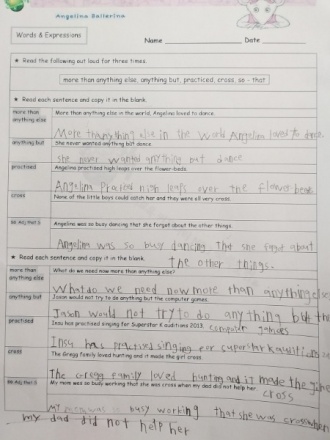 Angelina Ballerina
Words & Expressions
Name
Date
★ Read the following out loud for three times.
more than anything else, anything but, practiced, cross, so - that
★ Read each sentence and copy it in the blank.
more than anything else
More than anything else in the world, Angelina loved to dance.
More than anything else in the world Angelina loved to dance
anything but
She never wanted anything but dance.
she never wanted anything but dance
practised
Angelina practised high leaps over the flower-beds.
Angelina over the flower
cross
None of the little boys could catch her and they were all very cross.
Angelina was so busy dancing that she forgot about the other things.
Angelina was so busy dancing. That she about
the other things.
★ Read each sentence and copy it in the blank.
more than anything else
What do we need now more than anything else?
What do we need now more than anything else
anything but
Jason would not try to do anything but the computer games.
Jason would not try to do anything but the
computer games
practised
Insu has practised singing for Superstar K auditions 2013.
Insu has practised singing for superstar k auditions
cross
The Gregg family loved hunting and it made the girl cross.
The Gregg family loved hunting and it made the
cross
My mom was so busy working that she was cross when my dad did not help her
my mom was busy working that she was cross
my dad did not help her